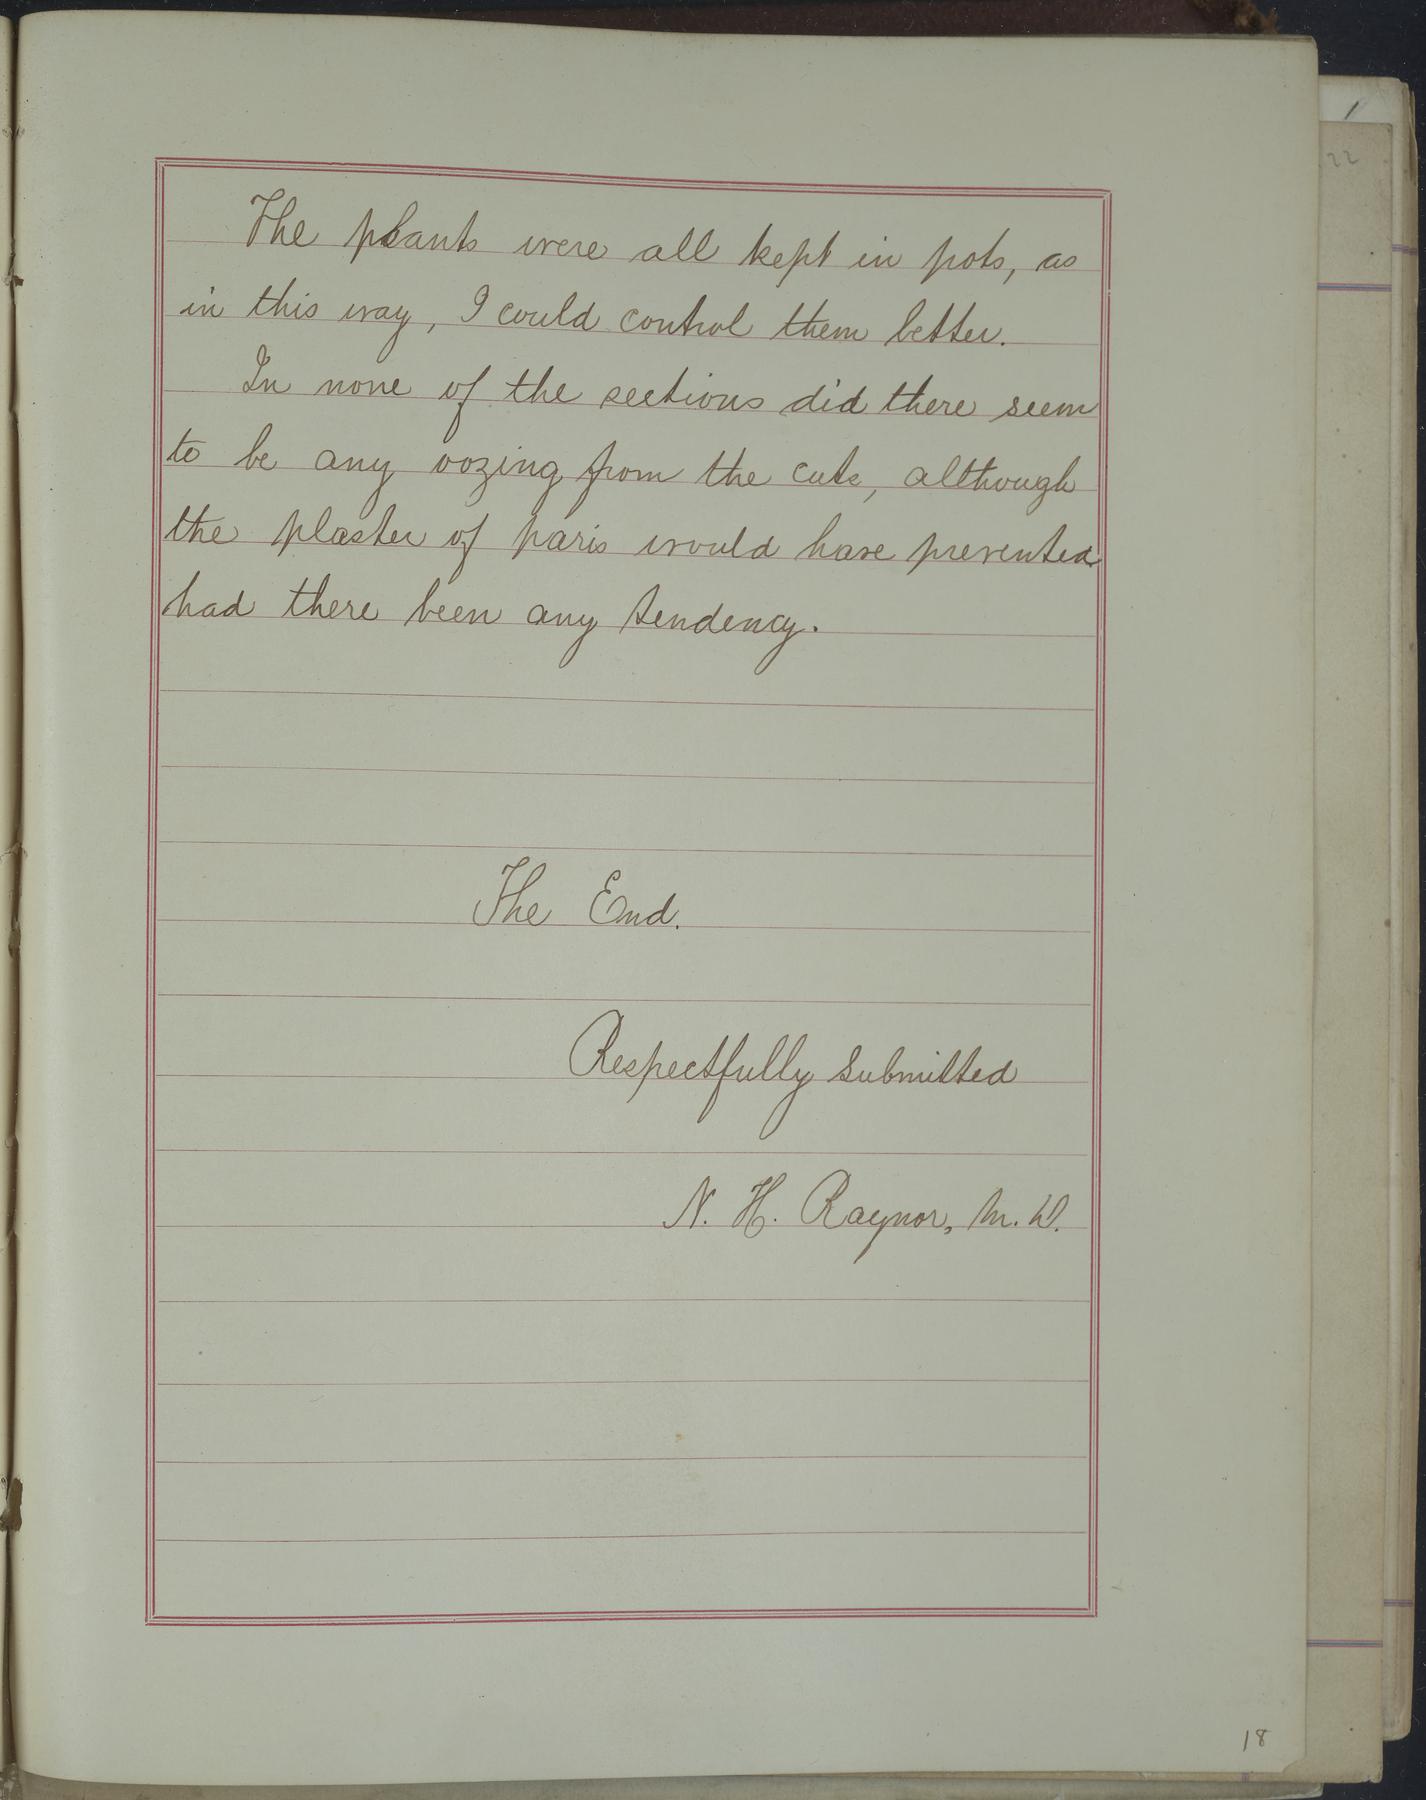 The plants were all kept in pots, as
in this way, I could control them better.
In none of the sections did there seem
to be any oozing from the cuts, although
the plaster of paris would have prevented
had there been any tendency.
The End.
Respectfully Submitted
N. H. Raynor, M. D.
18
22